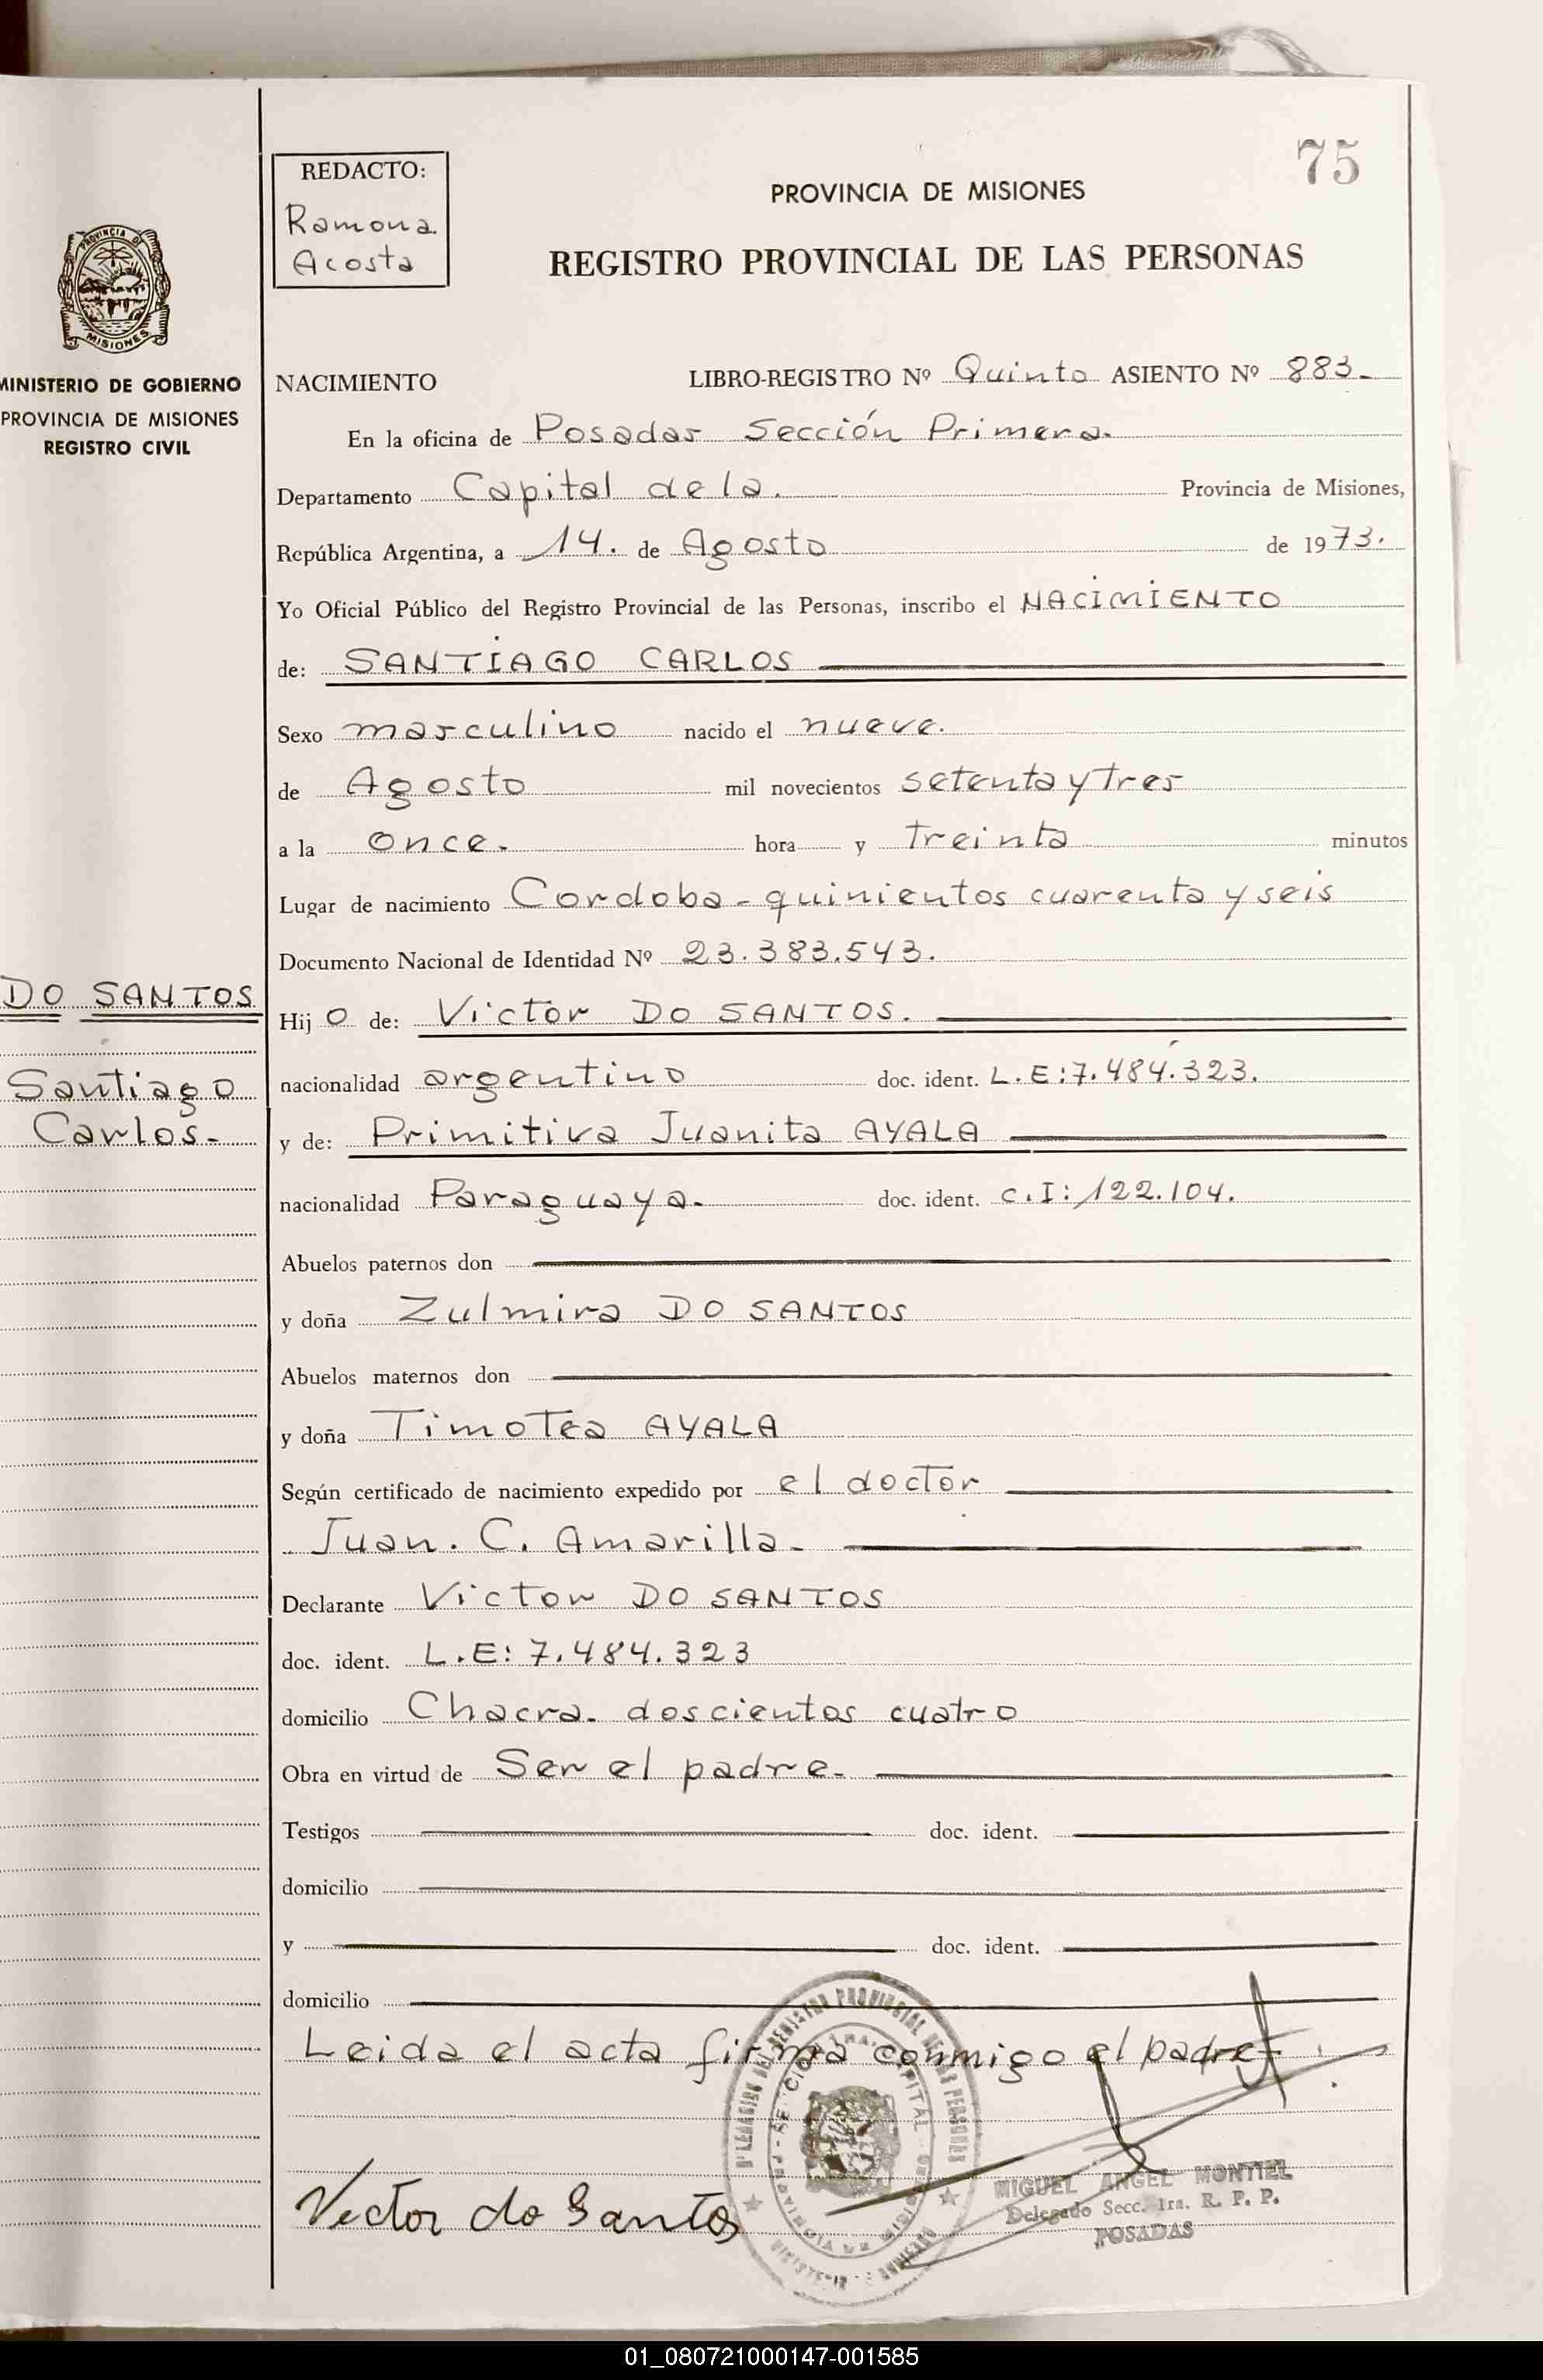 75
REDACTO:
Ramona
Acosta
PROVINCIA DE MISIONES
REGISTRO PROVINCIAL DE LAS PERSONAS
PROVINCIA DE
MISIONES
MINISTERIO DE GOBIERNO
PROVINCIA DE MISIONES
REGISTRO CIVIL
NACIMIENTO LIBRO-REGISTRO Nº Quinto ASIENTO Nº 883.
En la oficina de Posadas Sección Primera.
Departamento Capital de la. Provincia de Misiones,
República Argentina, a 14. de Agosto de 1973.
Yo Oficial Público del Registro Provincial de las Personas, inscribo el NACIMIENTO
de: SANTIAGO CARLOS
Sexo masculino nacido el nueve.
de Agosto mil novecientos setenta y tres
a la once. hora y treinta minutos
Lugar de nacimiento Cordoba - quinientos cuarenta y seis
Documento Nacional de Identidad Nº 23.383.543.
DO SANTOS
Santiago
Carlos.
Hijo de: Victor DO SANTOS.
nacionalidad argentino doc. ident. L.E:7.484.323.
y de: Primitiva Juanita AYALA
nacionalidad Paraguaya. doc. ident. C.I: 122.104.
Abuelos paternos don
y doña Zulmira DO SANTOS
Abuelos maternos don
y doña Timotea AYALA
Según certificado de nacimiento expedido por el doctor
Juan. C. Amarilla.
Declarante Victor DO SANTOS
doc. ident. L.E: 7.484.323
domicilio Chacra. doscientos cuatro
Obra en virtud de Ser el padre.
Testigos doc. ident.
domicilio
y doc. ident.
domicilio
Leida el acta firma conmigo el padre
Victor do Santos
MIGUEL ANGEL MONTIEL
Delegado Secc. 1ra. R. P. P.
POSADAS
01_080721000147-001585